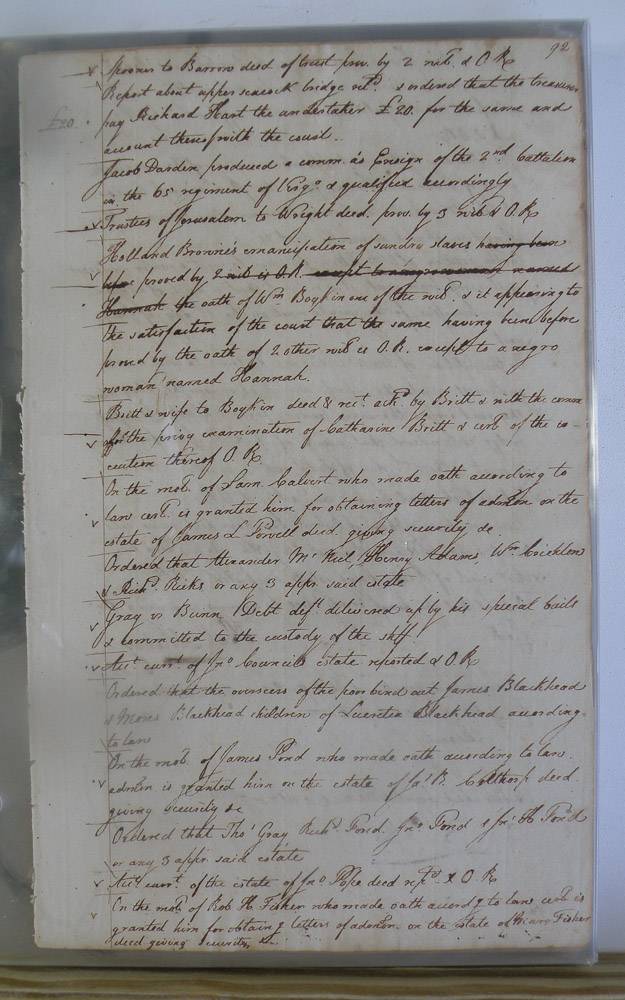 92
Spooner to Barrow deed of trust prov. by 2 witˢ. & O. R.
Report about upper seacock bridge retᵈ. & ordered that the treasurer
£20. pay Richard Hart the undertaker £20. for the same and
account thereof with the court.
Jacob Darden produced a comm. as Ensign of the 2ⁿᵈ battalion
in the 65 regiment of Virgᵃ. & qualified accordingly
Trustees of Jerusalem to Wright deed. prov. by 3 witˢ & O. R.
Holland Browne's emancipation of sundry slaves having been
before proved by 2 witˢ & O. R. except to a negro woman named
Hannah the oath of Wᵐ Boykin one of the witˢ. & it appearing to
the satisfaction of the court that the same having been before
proved by the oath of 2 other witˢ & O. R. except to a negro
woman named Hannah.
Britt & wife to Boykin deed & rect. ackᵈ. by Britt & with the comm
for the privy examination of Catharine Britt & certˢ. of the ex-
ecution thereof O. R.
On the motⁿ. of Sam. Calvert who made oath according to
law certˢ. is granted him for obtaining letters of admōn. on the
estate of James L Powell deed. giving security &c
Ordered that Alexander Mᶜ Kiel, Henry Adams, Wᵐ. Cricklow
& Richᵈ. Ricks or any 3 appr. said estate
Gray vs Bunn / Debt defᵗ. delivered up by his special bails
& committed to the custody of the shff.
Accᵗ. currᵗ. of Jnᵒ Councils estate reported & O. R.
Ordered that the overseers of the poor bind out James Blackhead
& Moses Blackhead children of Lucretia Blackhead according
to law
On the motⁿ. of James Pond who made oath according to law.
admōn is granted him on the estate of Jaˢ. B. Calthorp deed.
giving security &c
Ordered that Thoˢ Gray Richᵈ. Pond. Jnᵒ. Pond & Jnᵒ. H Pond
or any 3 appr. said estate
Accᵗ. currᵗ. of the estate of Jnᵒ Pope deed repᵗᵈ. & O. R.
On the motⁿ. of Rob H. Fisher who made oath accordᵍ to law certˢ. is
granted him for obtainᵍ letters of admōn. on the estate of Fisher
deed giving security, &c.